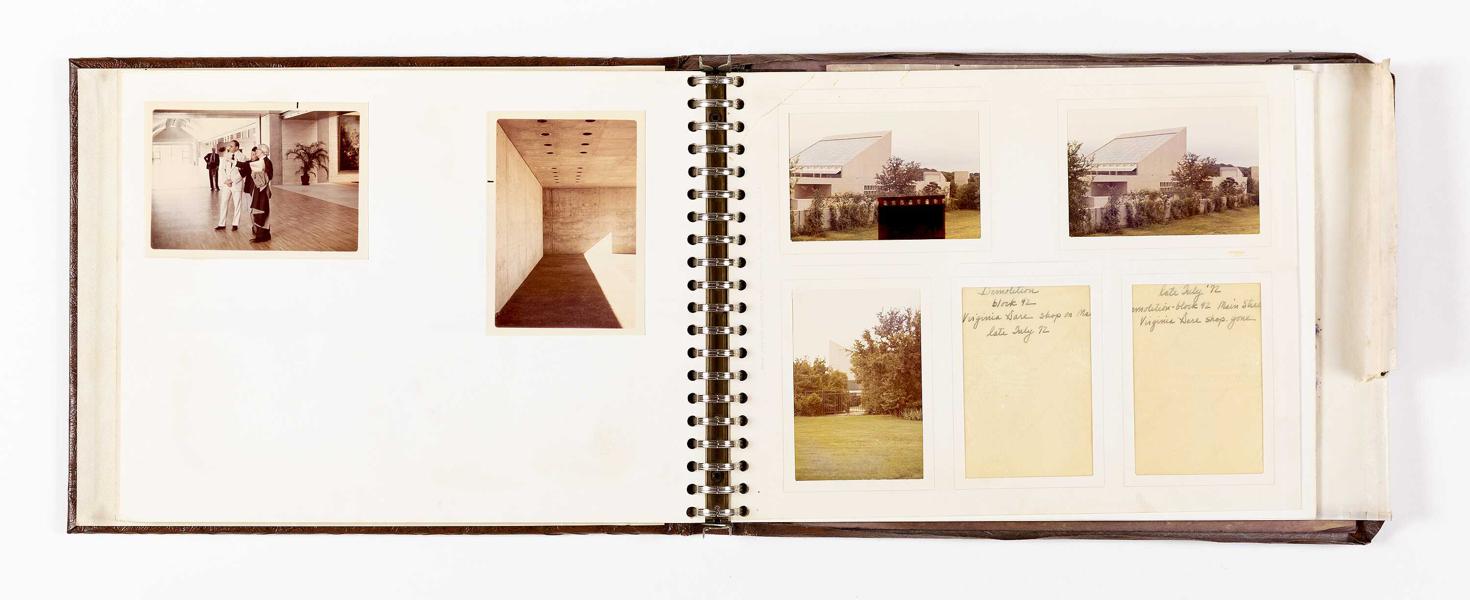 Demolition
block 92
Virginia Dare shop on Ma
late July 72
late July '72
molition - block 92 Main Stree
Virginia Dare shop gone